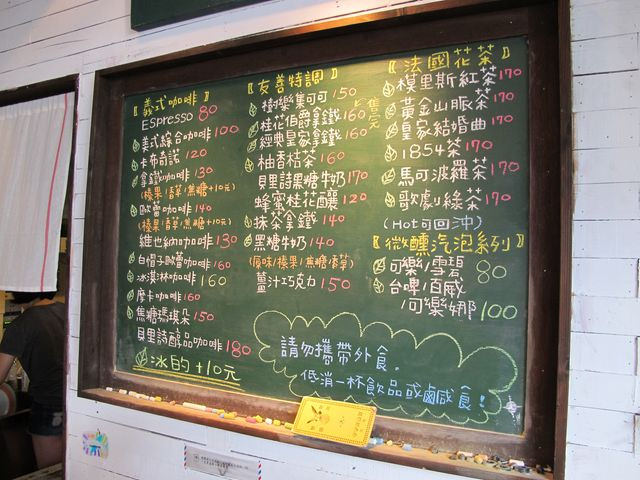 【義式咖啡】
ESPRESSO 80
美式綜合咖啡 100
卡布奇諾 120
拿鐵咖啡 130
(榛果/香草/焦糖+10元)
歐蕾咖啡 140
(榛果/香草/焦糖+10元)
維也納咖啡 130
白帽子歐蕾咖啡 160
冰淇淋咖啡 160
摩卡咖啡 160
焦糖瑪琪朵 150
貝里詩醇品咖啡 180
冰的+10元
【友善特調】
樹樂集可可 150
桂花伯爵拿鐵 160
經典皇家拿鐵 160
售完
柚香桔茶 160
貝里詩黑糖牛奶 170
蜂蜜桂花釀 120
抹茶拿鐵 140
黑糖牛奶 140
(原味/榛果/焦糖/香草)
薑汁巧克力 150
【法國花茶】
模里斯紅茶 170
黃金山脈茶 170
皇家結婚曲 170
1854茶 170
馬可波羅茶 170
歌劇綠茶 170
(Hot可回沖)
【微醺汽泡系列】
可樂/雪碧 80
台啤/百威
/可樂娜 100
請勿攜帶外食。
低消一杯飲品或鹹食!